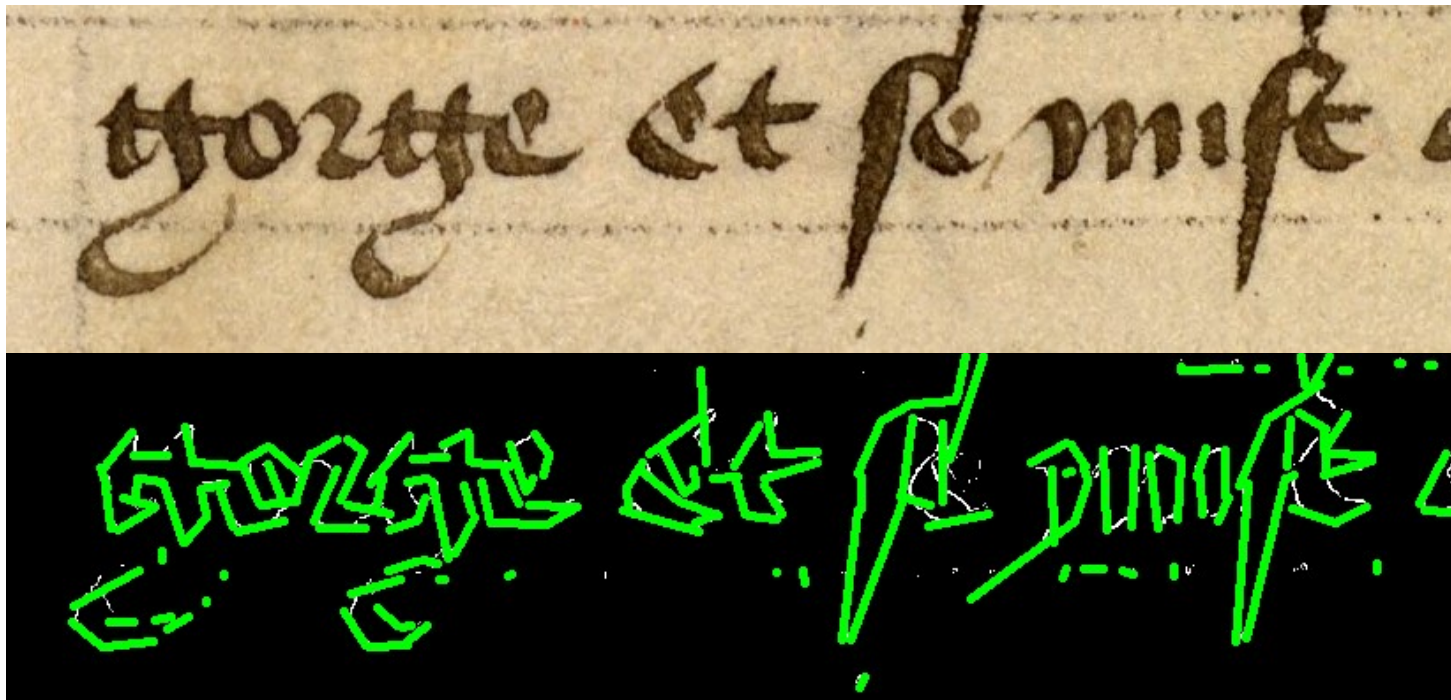 gorge Et se mist